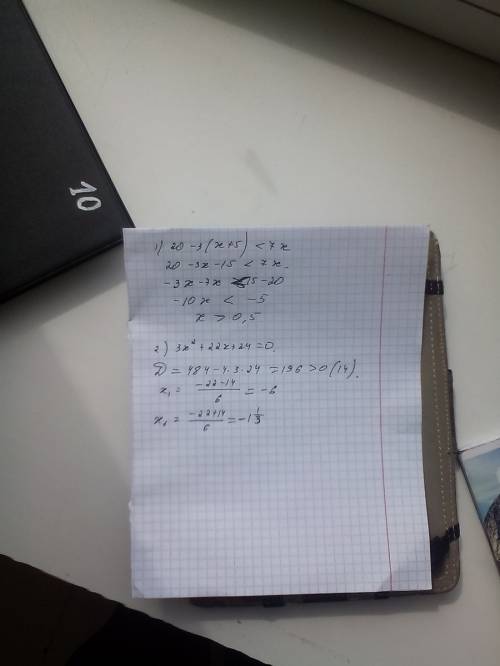 10
1) 20 -3(x+5) < 7x
20 -3x -15 < 7x.
-3x -7x < 15 -20
-10x < -5
x > 0,5
2) 3x² + 22x + 24 = 0.
D = 484 - 4·3·24 = 196 > 0 (14).
x₁ = \frac{-22-14}{6} = -6
x₂ = \frac{-22+14}{6} = -1\frac{1}{3}